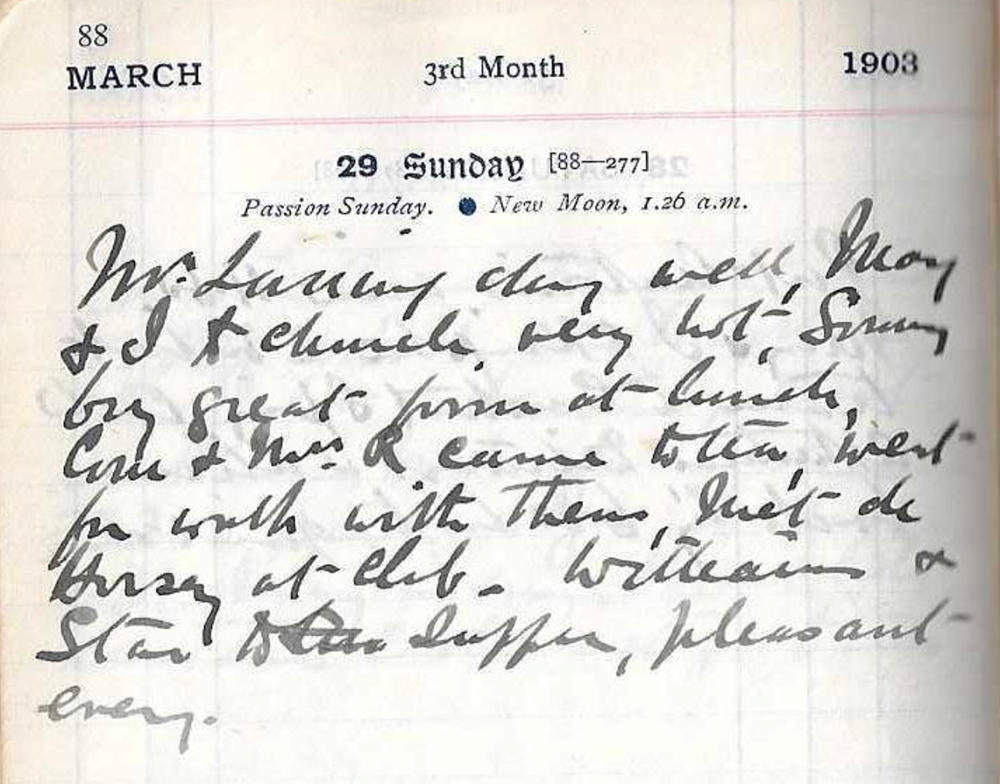 88
MARCH 3rd Month 1903
29 Sunday [88—277]
Passion Sunday. New Moon, 1.26 a.m.
Mrs. Lanning well, May
& I to church, very hot,
great form at lunch,
Com & Mrs. R came to tea, went
for walk with them, Met de
Horsey at Club - Williams &
Star to supper, pleasant
eveng.